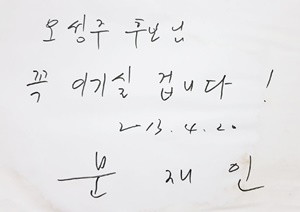 오성주 후보님
꼭 이기실 겁니다!
2013.4.20
문 재 인